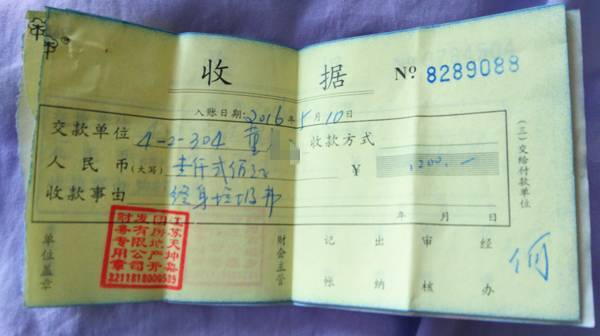 收 据
№ 8289088
入账日期：2016年5月10日
交款单位 4-2-304 董 收款方式
人民币(大写) 壹仟贰佰元 ¥ 1200.—
收款事由 终身垃圾费
年 月 日
(三)交给付款单位
单位盖章 财会主管 记账 出纳 审核 经办 何
江苏天坤集团房地产开发有限公司财务专用章